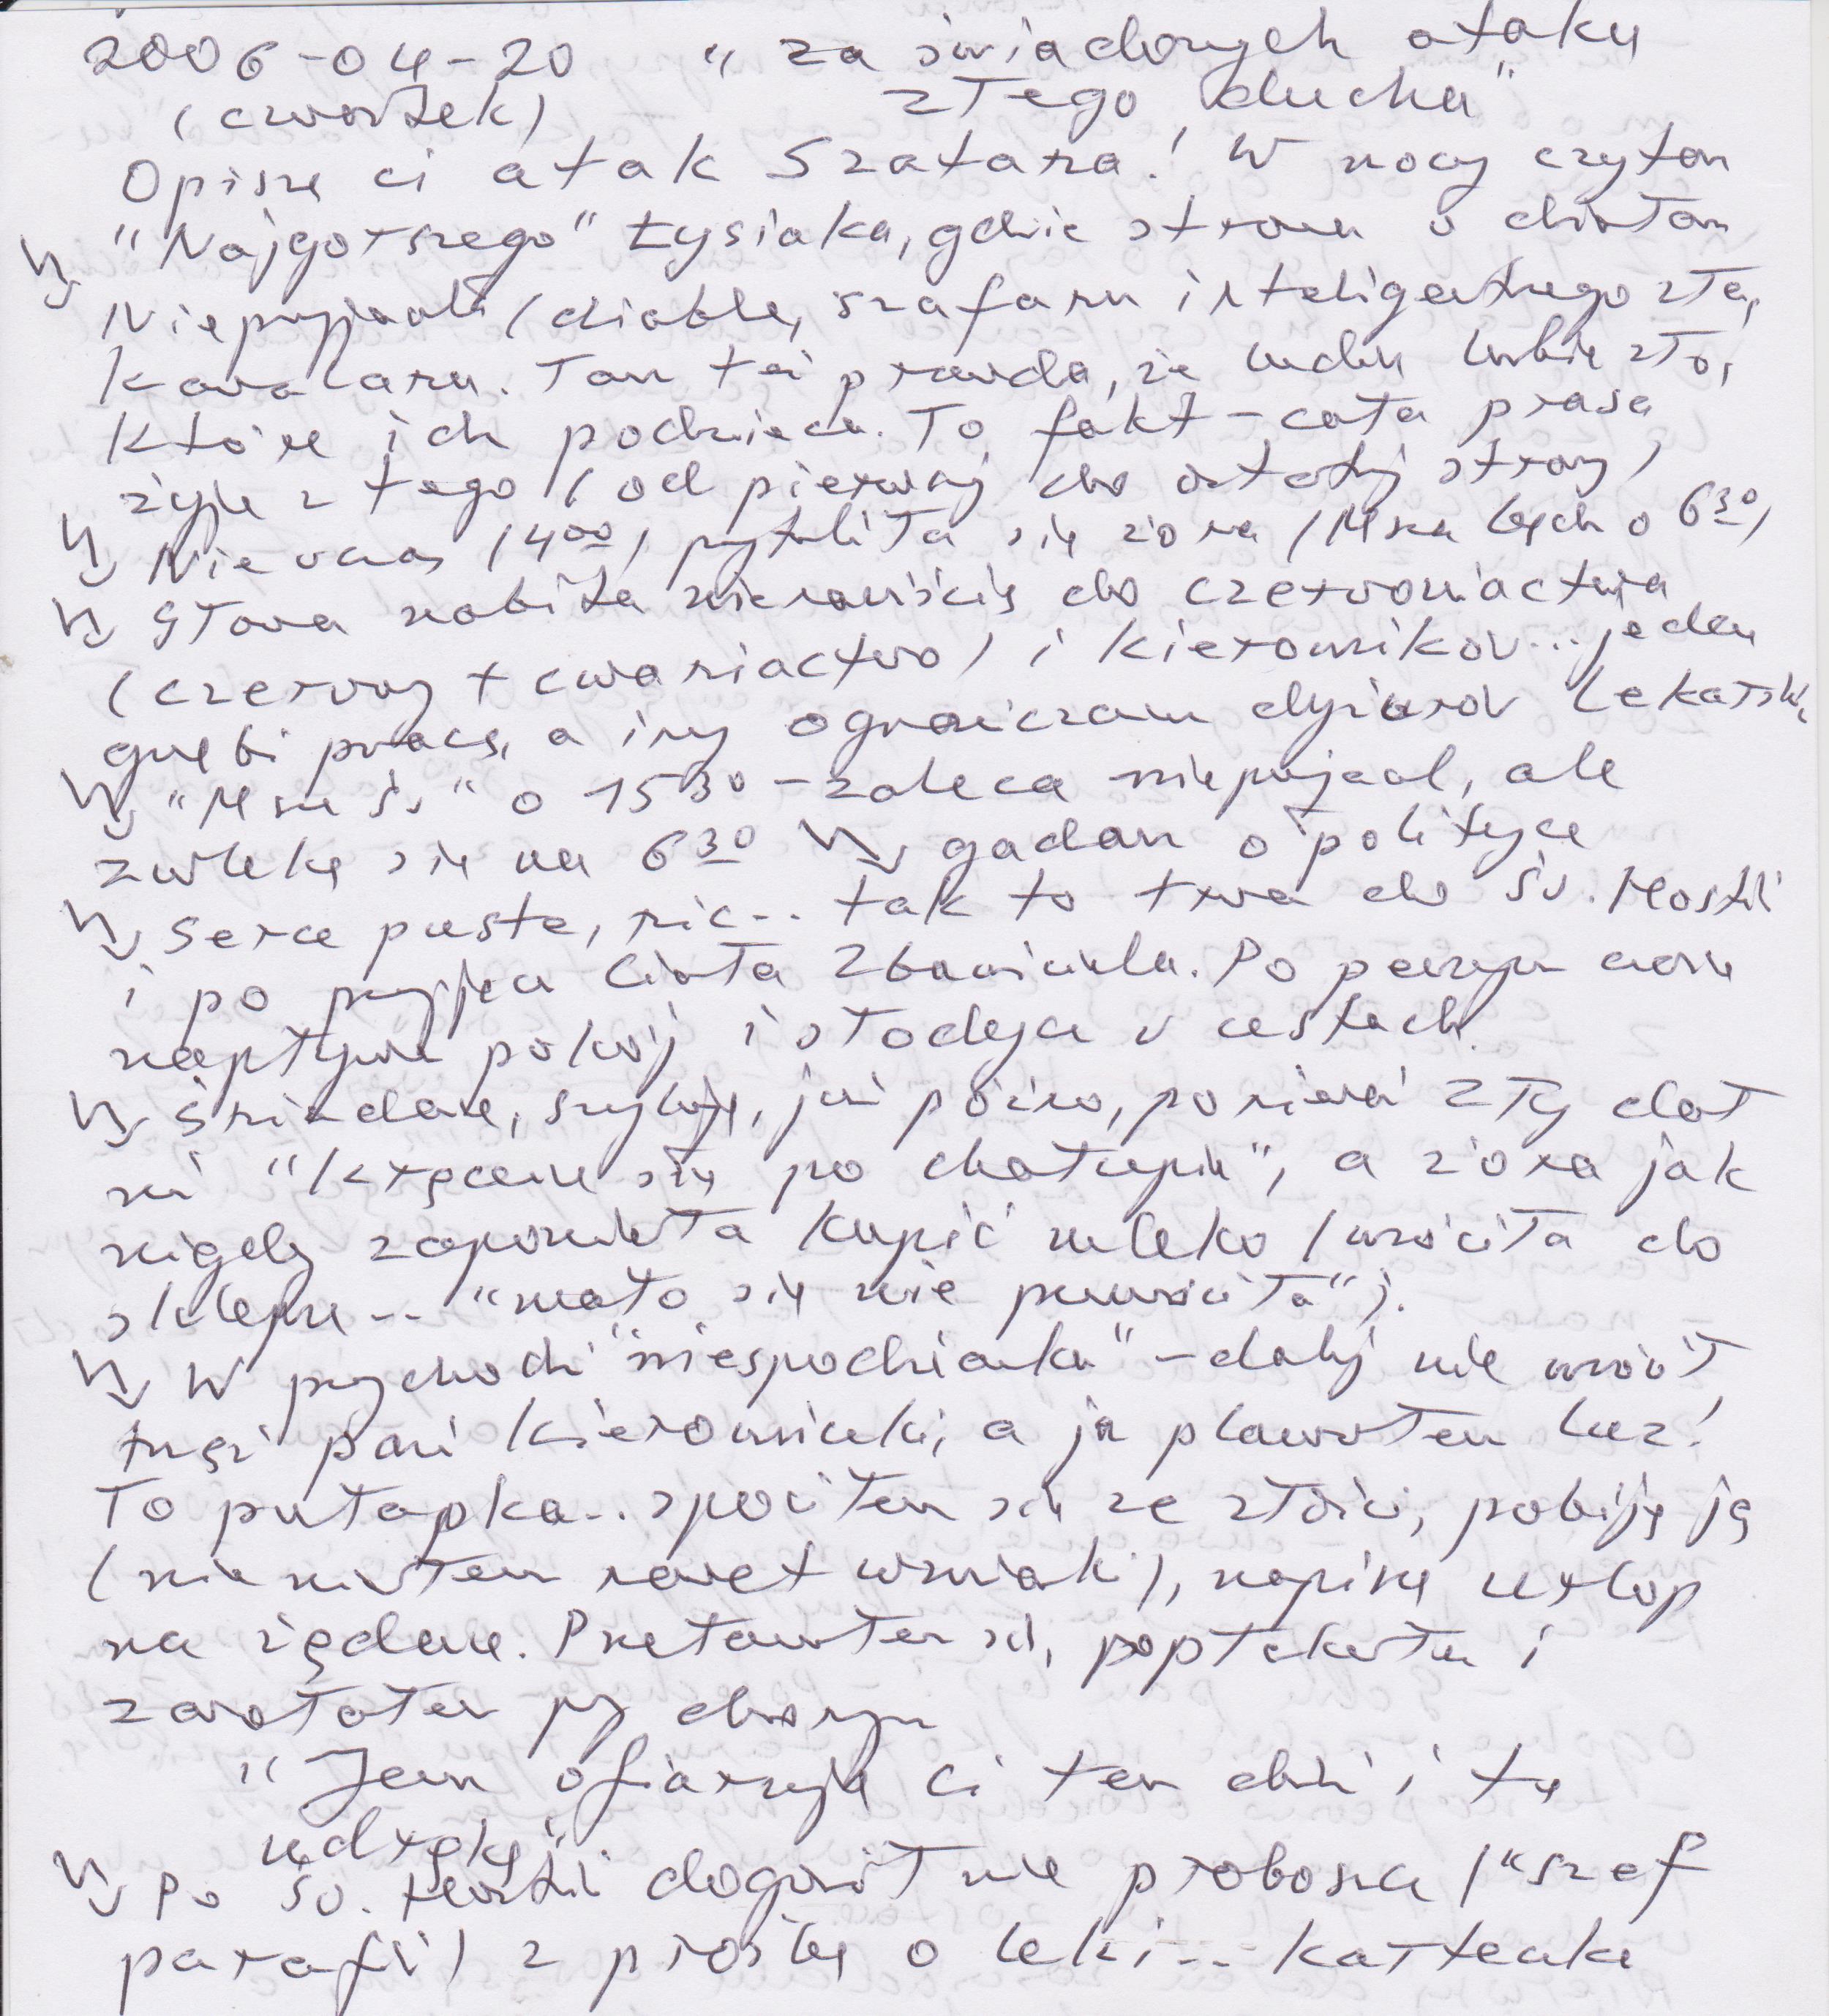 2006-04-20 "za świadomych ataku
(czwartek) złego ducha"
Opiszę ci atak Szatana! W nocy czytam
"Najgorszego" Łysiaka, gdzie strona o
Niepryjacielu (diable, szafarzu inteligentnego zła,
kawalarzu. Tam też prawda, że ludzie lubią zło,
które ich podnieca. To fakt - cała prasa
żyje z tego (od pierwszej do ostatniej strony)
Nie wcześ (4 00) przytuliła się żona (Msza będzie o 6 30)
Głowa nabita nienawiścią do czerwoniactwa
(czerwony + cwaniactwo) i kierowników... jeden
gnębi pracą, a inny ograniczam dyżurów lekarski.
"Msza św" o 15 30 - zaleca niepryjaciel, ale
zwlekę się na 6 30 gadam o polityce
Serce puste, nic... tak to trwa do św. Hostii
i po przyjęciu Ciała Zbawiciela. Po pewnym czasie
napływa pokój i słodycz w ustach.
Śniadanie, szykuję, już późno, ponieważ Zły dał
mi "kręcenie się po chałupie", a żona jak
nigdy zapomniała kupić mleko (wróciła do
sklepu... "mało się nie przewróciła").
W przychodni "niespodzianka" - dalej nie wrócił
mąż pani kierowniczki, a ja planowałem luz!
To pułapka... spociłem się ze złości, pobiję ją
(nie miałem nawet wzmianki), napiszę urlop
na żądanie. Przełamałem się, popłakałem i
zawołałem przy chorym
"Jezu ofiaruję Ci ten dzień i tę
udrękę"
Po św. Hostii dogonił mnie proboszcz ("szef
parafii) z prośbą o leki... karteczkę